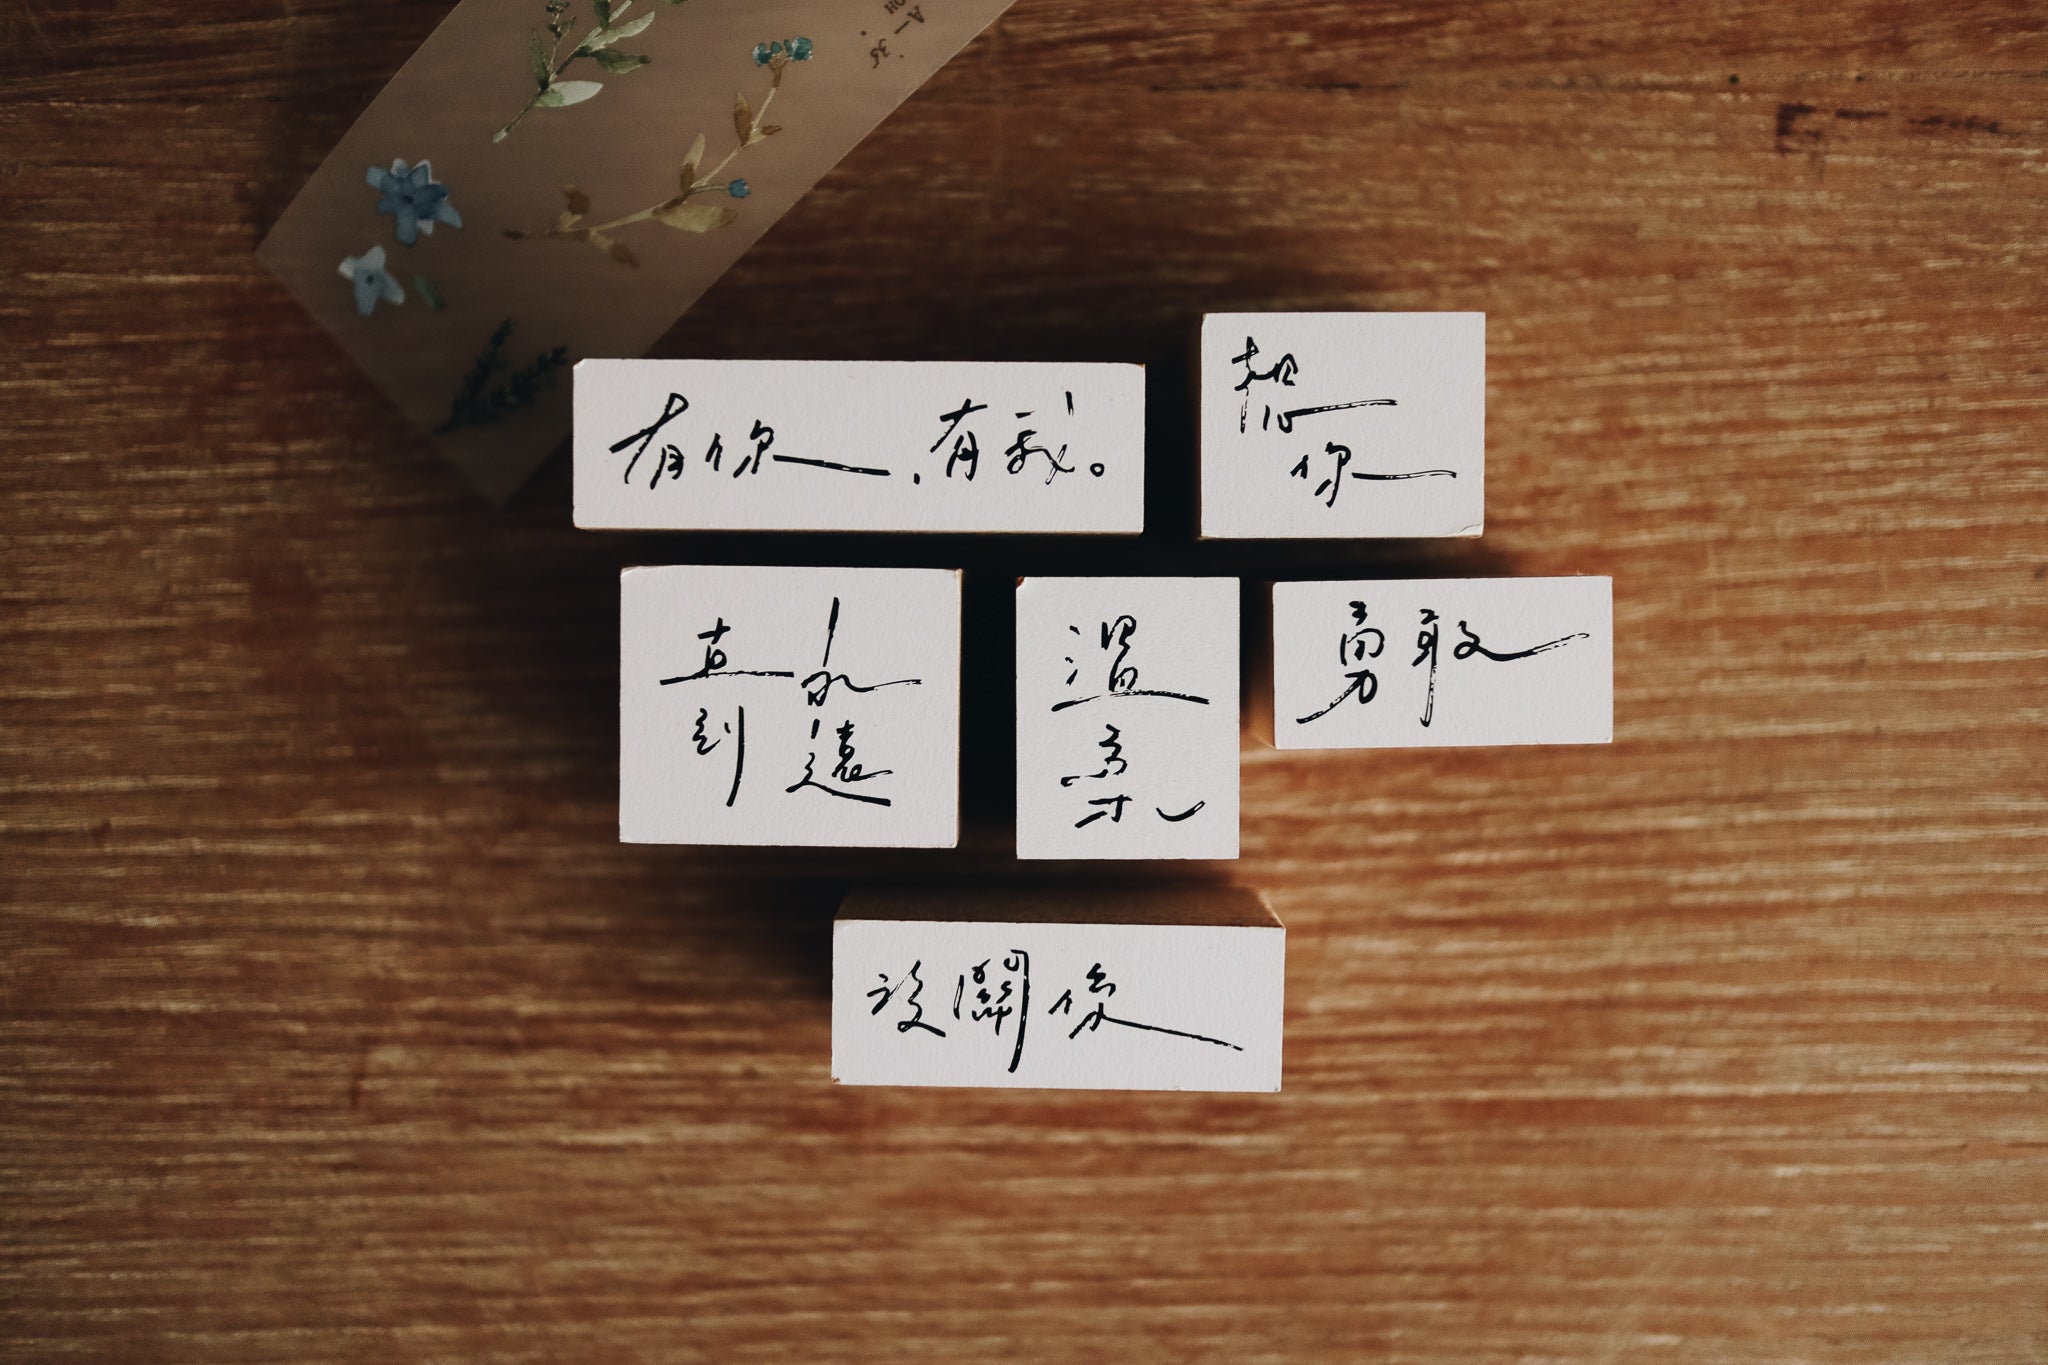 A—35
有你，有我。
想
你
直到
永遠
溫柔
勇敢
沒關係